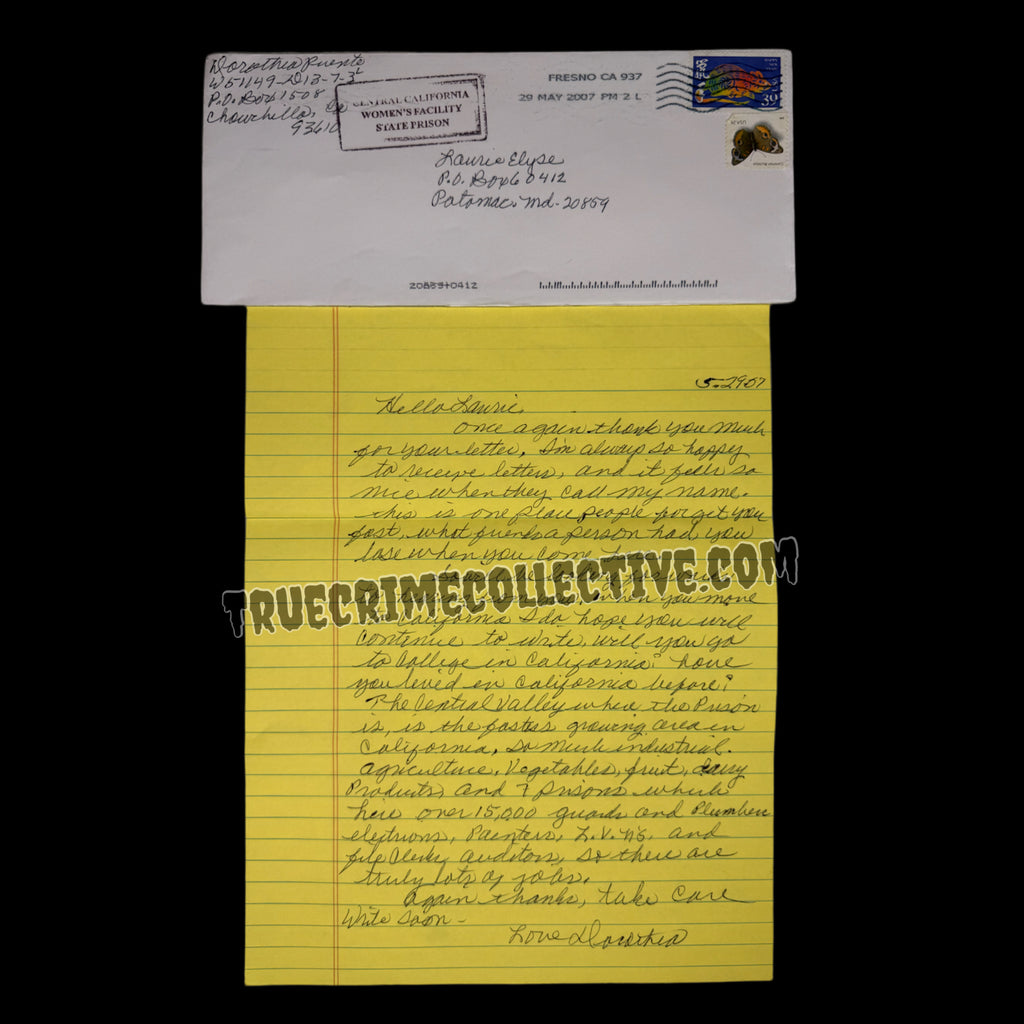 Dorothea Puente
W51149-D13-7-3L
P.O. Box 1508
Chowchilla, Ca
93610
CENTRAL CALIFORNIA
WOMEN'S FACILITY
STATE PRISON
FRESNO CA 937
29 MAY 2007 PM 2 L
39
Laurie Elyse
P.O. Box 60412
Potomac, Md-20859
20859+0412
5-2907
Hello Laurie,
Once again thank you much
for your letter, I'm always so happy
to receive letters, and it feels so
nice when they call my name.
this is one place people forget you
fast, what friends a person had, you
lose when you come
TRUECRIMECOLLECTIVE.COM
when you move
to California I do hope you will
continue to write, will you go
to College in California? have
you lived in California before?
The Central Valley where the Prison
is, is the fastes growing area in
California, so much industrial.
agriculture, Vegetables, fruit, Dairy
Products, and 7 prisons which
hire over 15,000 guards and Plumbers
electrions, Painters, L.V.N's. and
file Clerks, auditors, so there are
truly lots of jobs.
Again thanks, take care
Write soon -
Love Dorothea